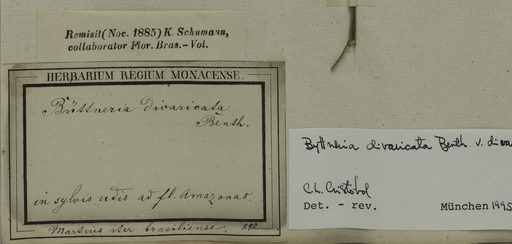 Remisit (Nov. 1885) K. Schumann,
collaborator Flor. Bras.-Vol.
HERBARIUM REGIUM MONACENSE.
Büttneria divaricata
Benth.
in sylvis udis ad fl. Amazonas.
Martius iter brasiliense. 290
Byttneria divaricata Benth. v. diva
Ch. Cristóbal
Det. - rev. München 1995